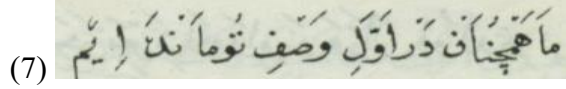 (7) مَا هَمْچُنَانْ دَرْاَوَّلِ وَصْفِ تُومَانْدَهَ اِیّم